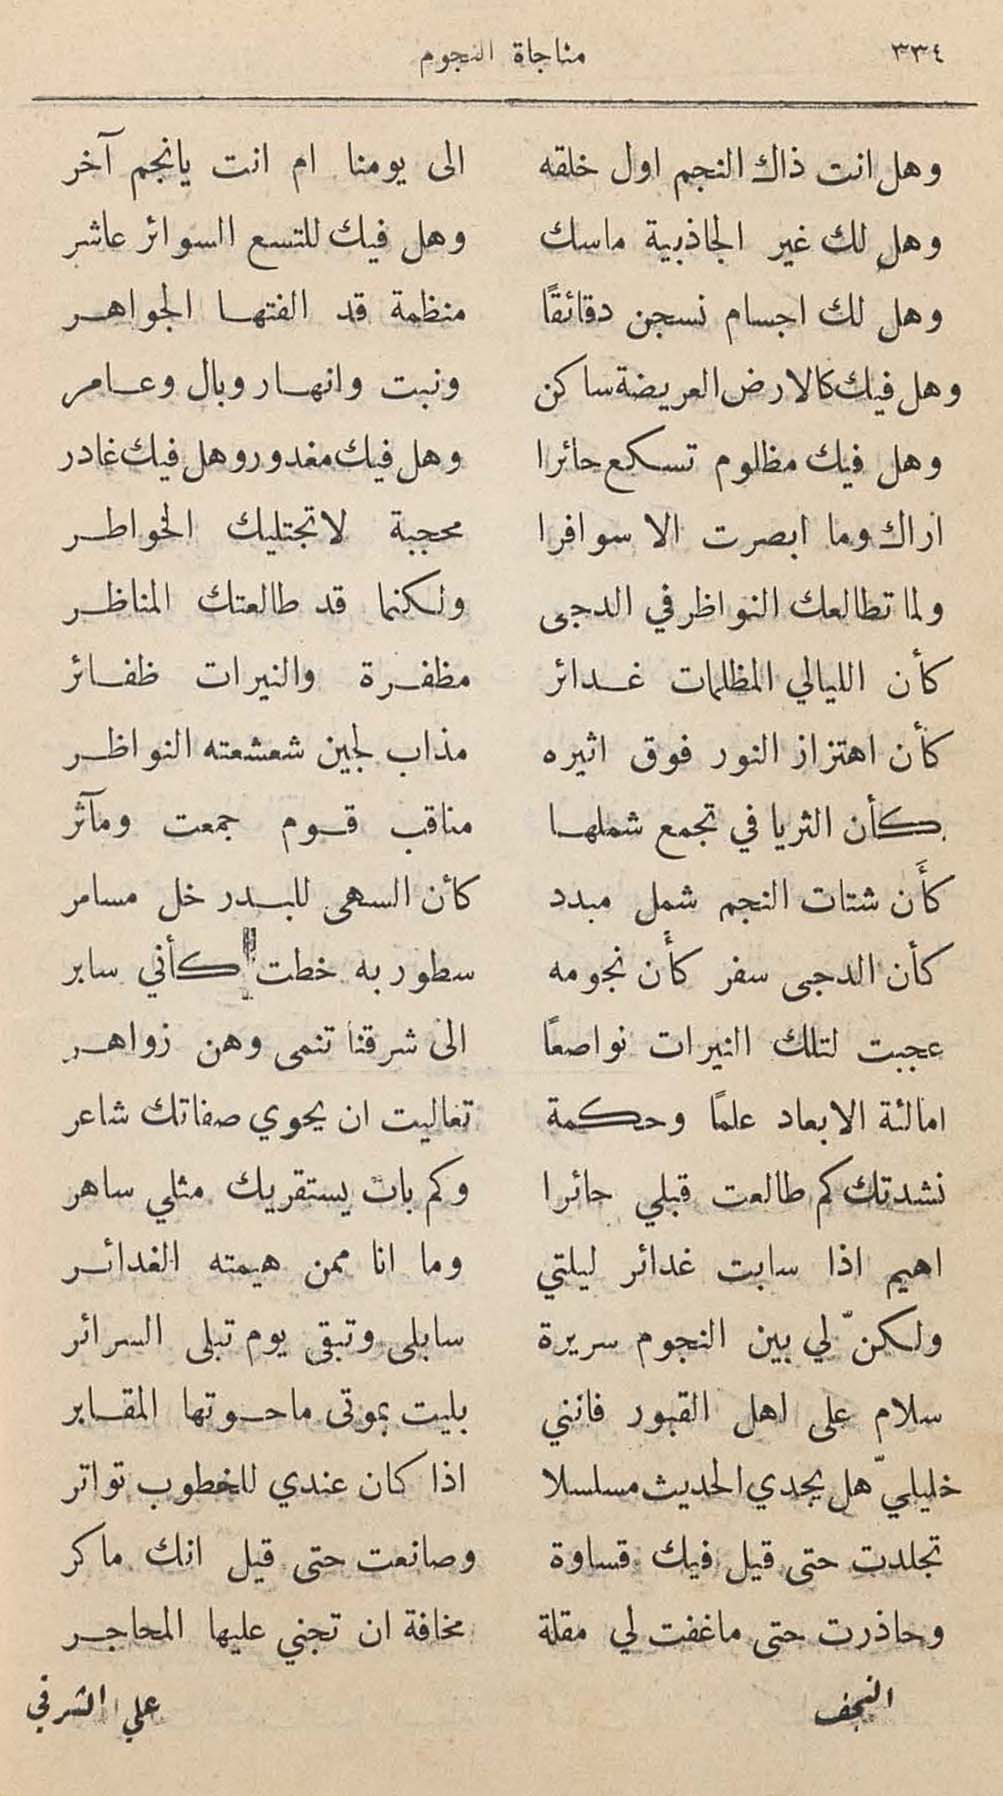 ٣٣٤ مناجاة النجوم
وهل انت ذاك النجم اول خلقه الى يومنا ام انت يانجم آخر
وهل لك غير الجاذبية ماسك وهل فيك للتسع السوائر عاشر
وهل لك اجسام نسجن دقائقًا منظمة قد الفتها الجواهر
وهل فيك كالارض العريضة ساكن ونبت وانهار وبال وعامر
وهل فيك مظلوم تسكع حائرا وهل فيك مغدور وهل فيك غادر
اراك وما ابصرت الا سوافرا محجبة لاتجتليك الخواطر
ولما تطالعك النواظر في الدجى ولكنما قد طالعتك المناظر
كأن الليالي المظلمات غدائر مظفرة والنيرات ظفائر
كأن اهتزاز النور فوق اثيره مذاب لجين شعشعته النواظر
كأن الثريا في تجمع شملها مناقب قوم جمعت ومآثر
كأَن شتات النجم شمل مبدد كأن السهى للبدر خل مسامر
كأن الدجى سفر كأَن نجومه سطور به خطت كأني سابر
عجبت لتلك النيرات نواصعًا الى شرقنا تنمى وهن زواهر
امالئة الابعاد علمًا وحكمة تعاليت ان يحوي صفاتك شاعر
نشدتك كم طالعت قبلي حائرا وكم بات يستقريك مثلي ساهر
اهيم اذا سابت غدائر ليلتي وما انا ممن هيمته الغدائر
ولكنّ لي بين النجوم سريرة سابلى وتبقى يوم تبلى السرائر
سلام على اهل القبور فانني بليت بموتى ماحوتها المقابر
خليليّ هل يجدي الحديث مسلسلا اذا كان عندي للخطوب تواتر
تجلدت حتى قيل فيك قساوة وصانعت حتى قيل انك ماكر
وحاذرت حتى ماغفت لي مقلة مخافة ان تجني عليها المحاجر
النجف علي الشرقي